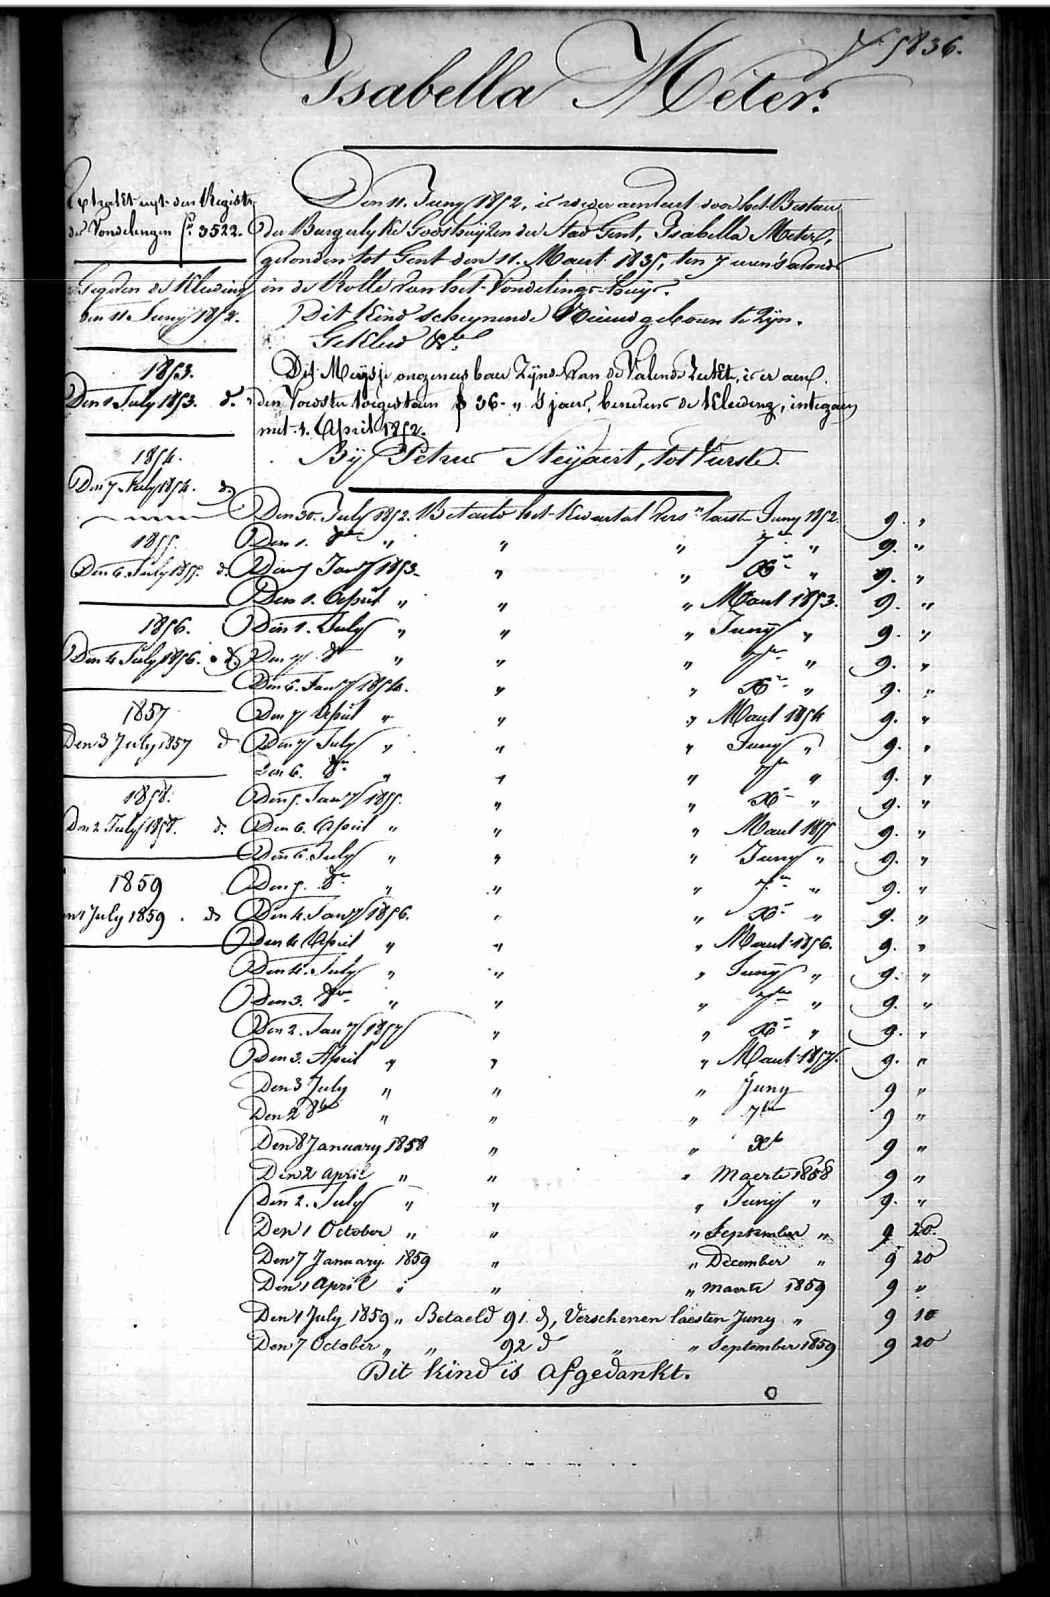 f° 5836.
Isabella Meter.
Extrakt uyt den Registe
der Vondelingen f° 3522.
Gegeven de Kleeding
den 11 Juny 1852.
1853.
Den 1 July 1853. d°
1854.
Den 7 July 1854. d°
1855.
Den 6 July 1855. d°
1856.
Den 4 July 1856. d°
1857
Den 3 July 1857 d°
1858.
Den 2 July 1858. d°
1859
en 1 July 1859. d°
Den 11. Juny 1852, is weder aenveert door het Bestuer
der Burgerlyke Godshuyzen der Stad Gent, Isabella Meter,
gevonden tot Gent den 11. Maert 1835, ten 7 uren 's avonds
in de Rolle van het Vondelings-huys.
Dit Kind schynende Nieuwgeboren te zyn.
Gekleed &a
Dit Meysje ongeneesbaer zynde van de Valende Ziekte, is er aen
den Voedster toegestaen 36 - " 's jaers, benevens de Kleeding, integaen
met 1. April 1852.
By Petrus Steyaert, tot Eurste.
Den 30. July 1852. Betaeld het Kwartal vers. laesten Juny 1852. 9. "
Den 1. 8ber " " " 7ber " 9. "
Den 7 Jany 1853. " " Xber " 9. "
Den 1. April " " " Maert 1853. 9. "
Den 1. July " " " Juny " 9. "
Den 7. 8ber " " " 7ber " 9. "
Den 6. Jany 1854. " " Xber " 9. "
Den 7 April " " " Maert 1854 9. "
Den 7 July " " " Juny " 9. "
Den 6. 8ber " " " 7ber " 9. "
Den 5. Jany 1855. " " Xber " 9. "
Den 6. April " " " Maert 1855 9. "
Den 6. July " " " Juny " 9. "
Den 5. 8ber " " " 7ber " 9. "
Den 4. Jany 1856. " " Xber " 9. "
Den 4 April " " " Maert 1856. 9. "
Den 4. July " " " Juny " 9. "
Den 3. 8ber " " " 7ber " 9. "
Den 2. Jany 1857 " " Xber " 9. "
Den 3. April " " " Maert 1857. 9. "
Den 3 July " " " Juny 9 "
Den 2 8ber " " " 7ber 9 "
Den 8 January 1858 " " Xber 9 "
Den 2 april " " " Maerte 1858 9 "
Den 2. July " " " Juny " 9. "
Den 1 October " " " September " 9 20.
Den 7 January 1859 " " December " 9 20
Den 1 April " " " maerte 1859 9 "
Den 1 July 1859 " Betaeld 91 d, Verschenen laesten Juny " 9 10
Den 7 October " " 92 d " " September 1859 9 20
Dit kind is afgedankt.